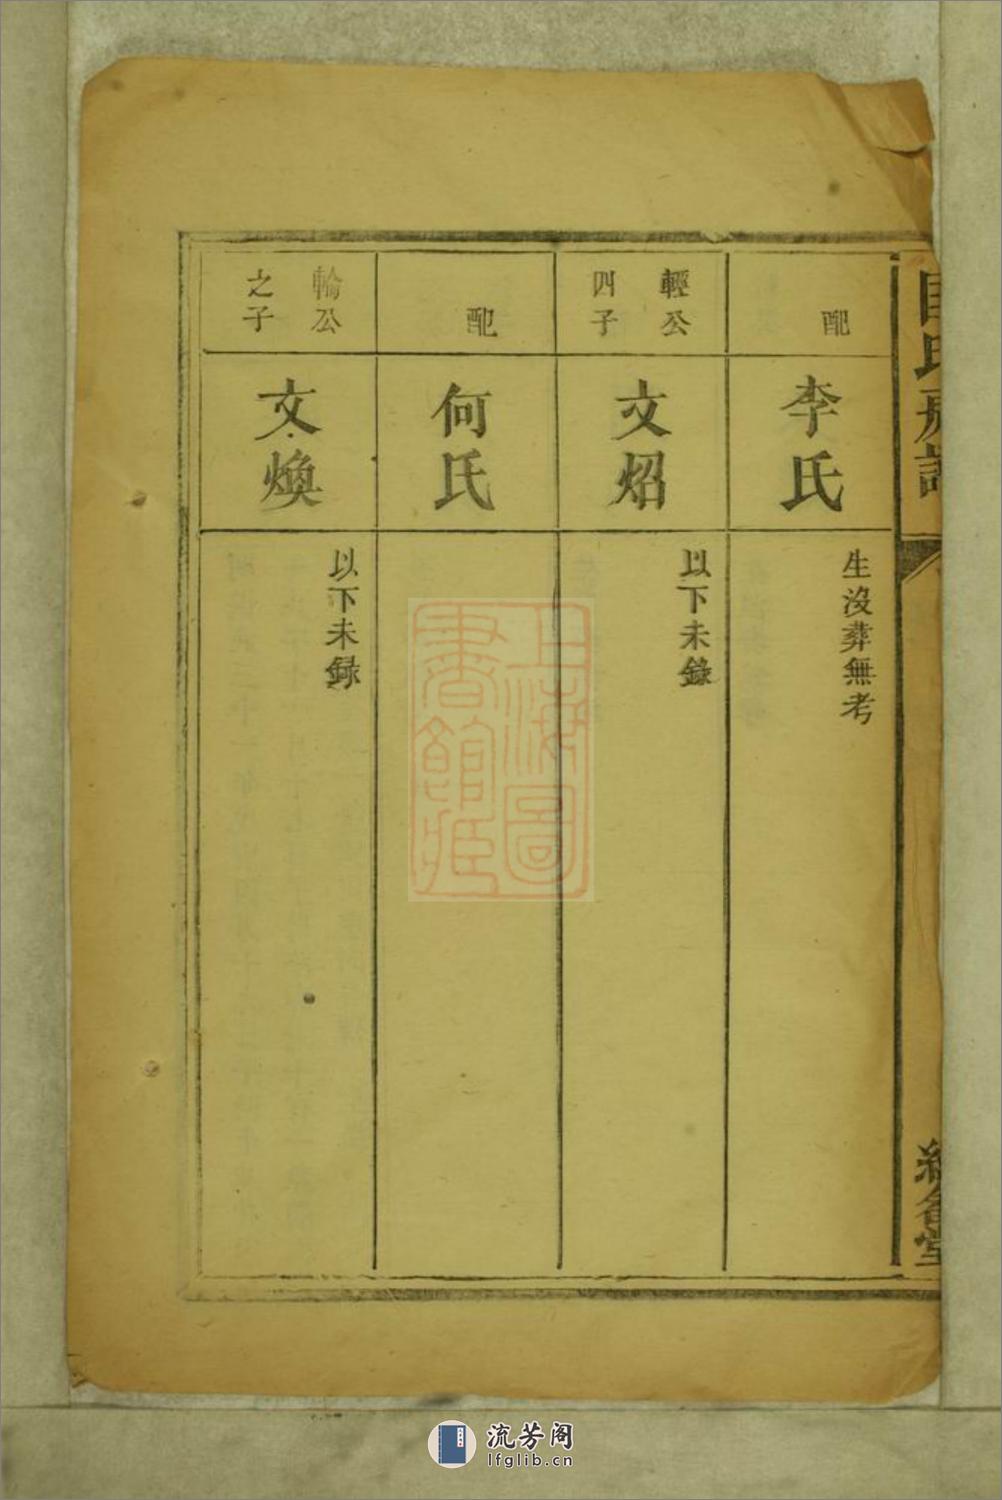 氏房譜
堂
配
李氏
生沒葬無考
輕公
四子
文炤
以下未錄
配
何氏
輪公
之子
文煥
以下未録
上海圖
書館藏
流芳阁
lfglib.cn